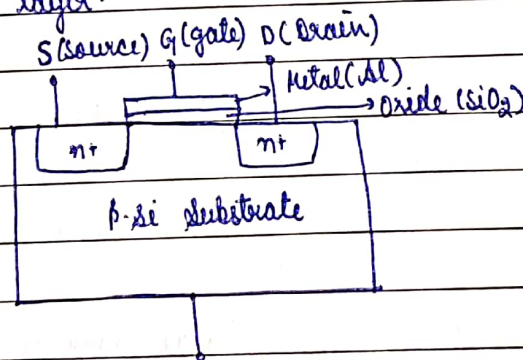 layer
S(source) G(gate) D(Drain)
Metal(Al)
Oxide (SiO2)
n+ n+
p-Si Substrate